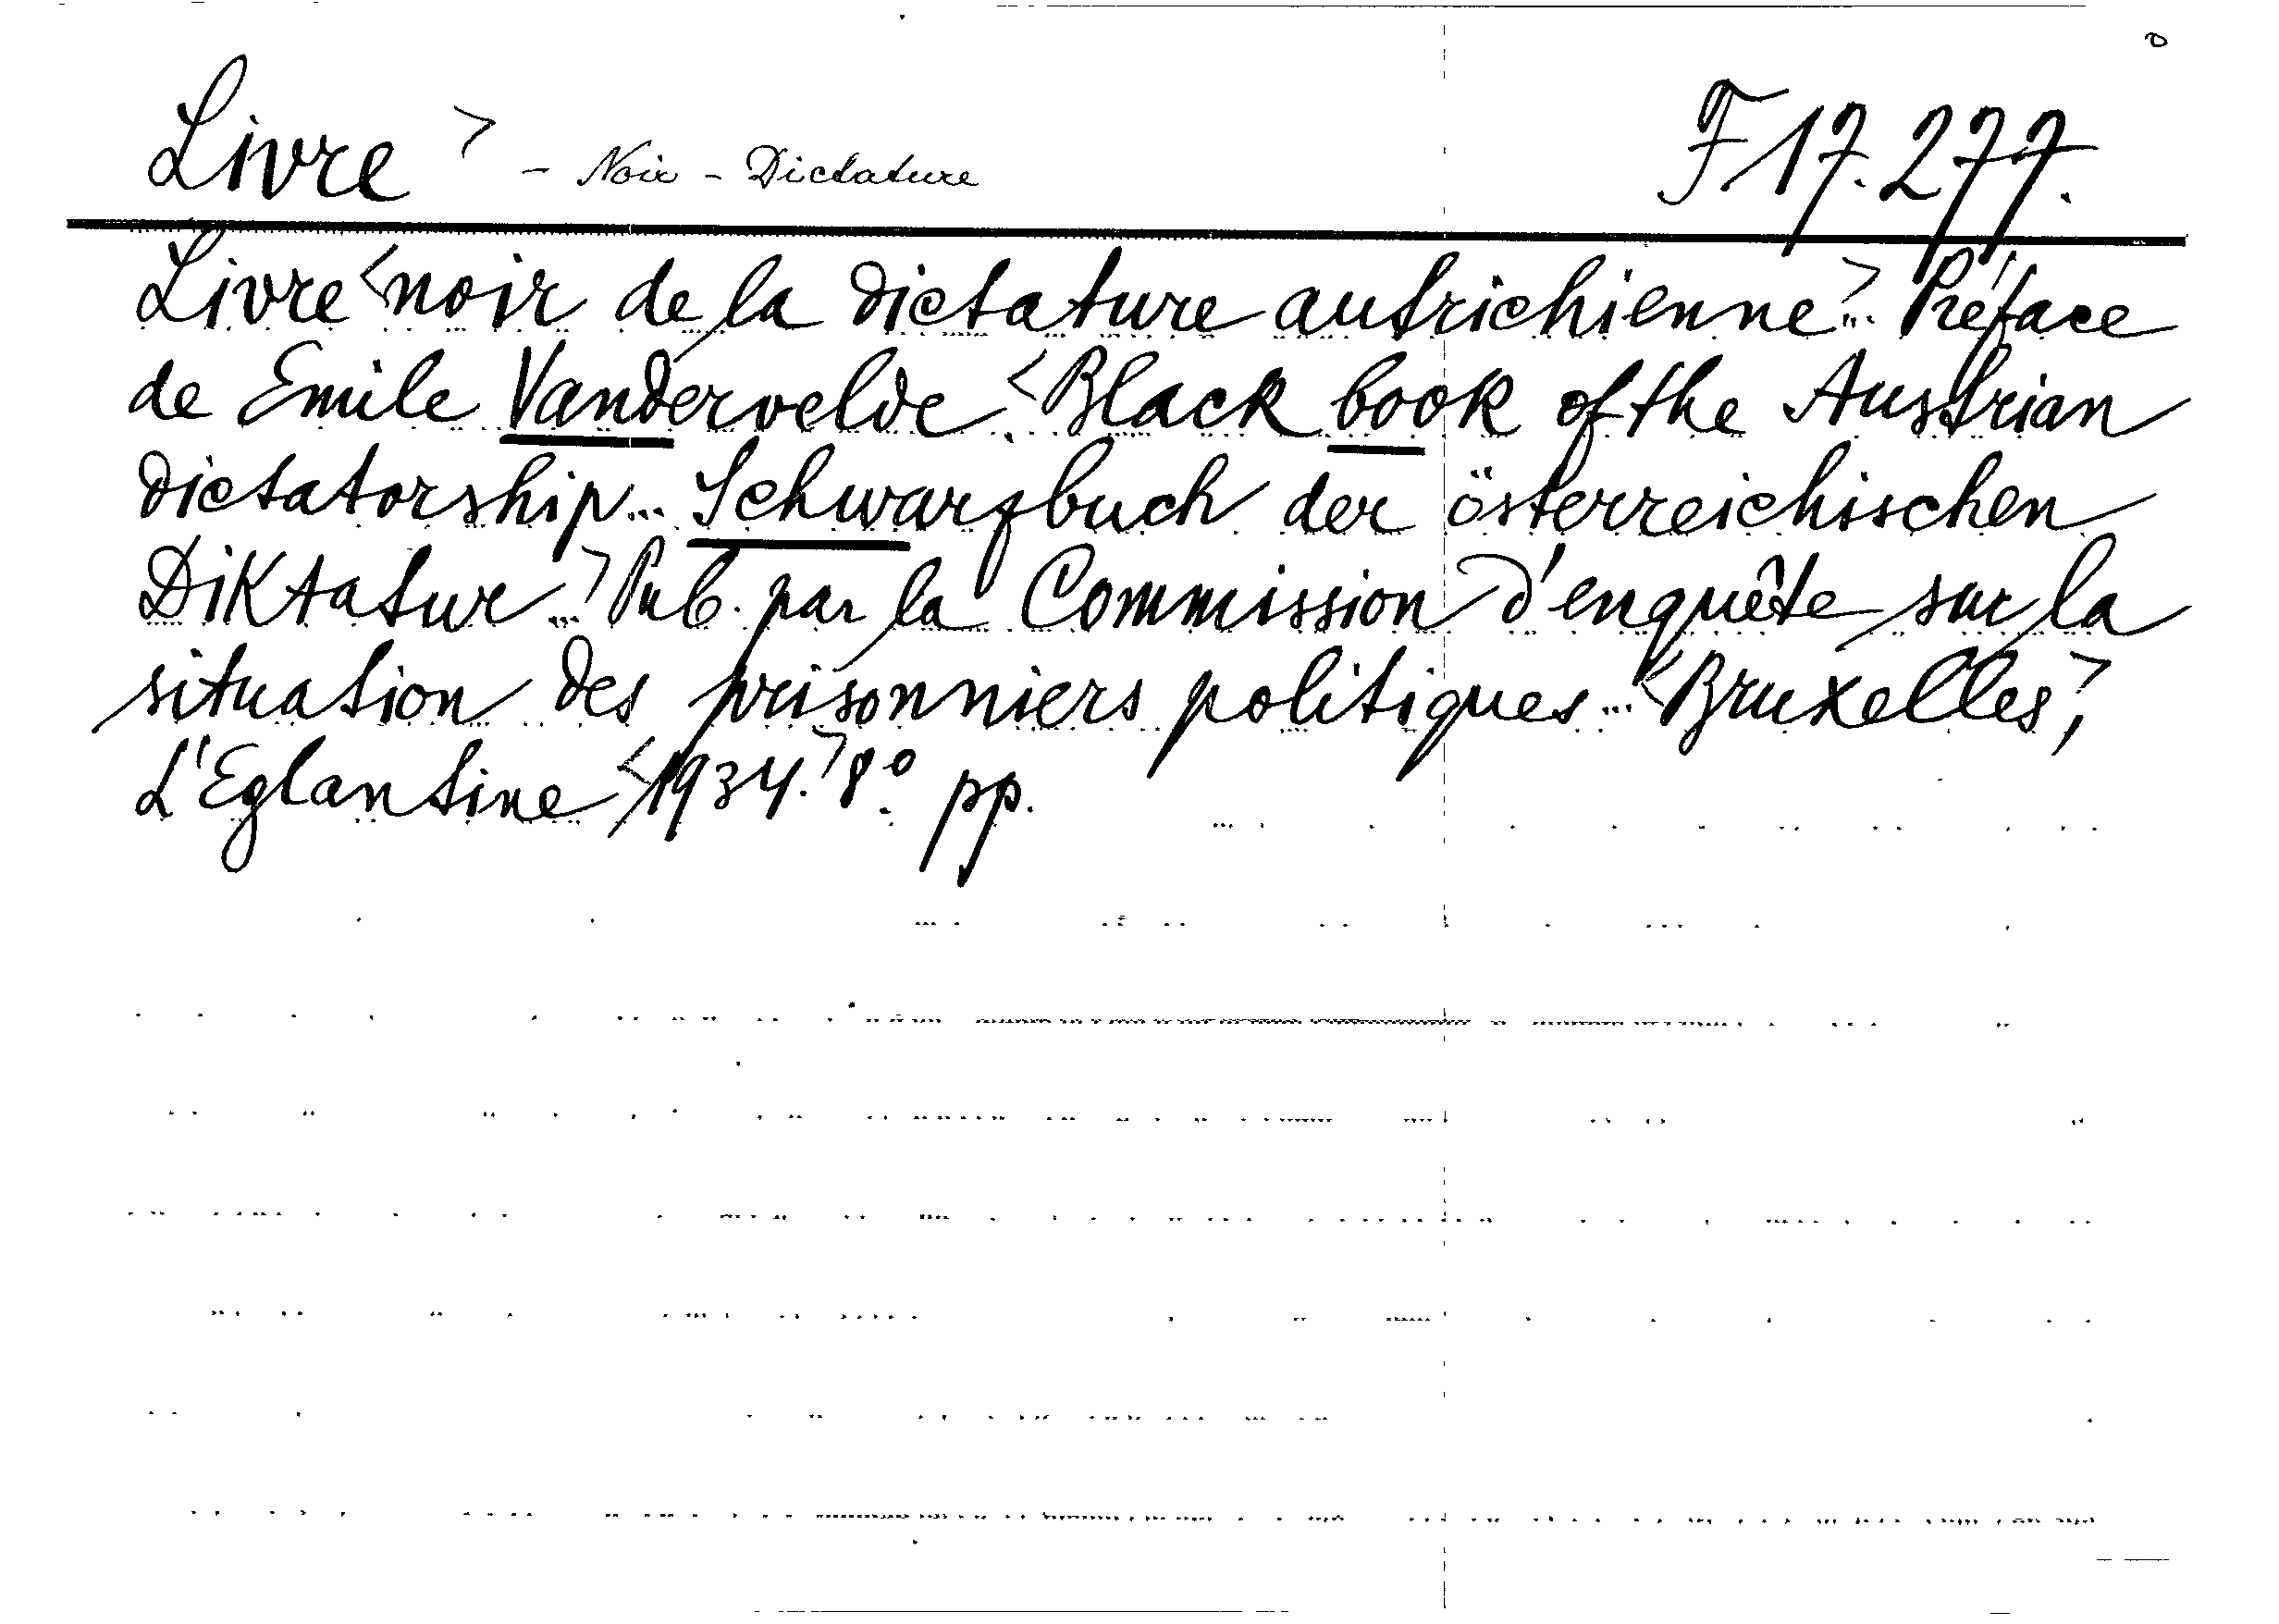 Livre > - Noir - Dictature F 17.277.
Livre <noir de la dictature autrichienne>... Préface
de Emile Vandervelde. <Black book of the Austrian
dictatorship... Schwarzbuch der österreichischen
Diktatur...> Pub. par la Commission d'enquête sur la
situation des prisonniers politiques... <Bruxelles>,
L'Eglantine <1934.> 8º. pp.